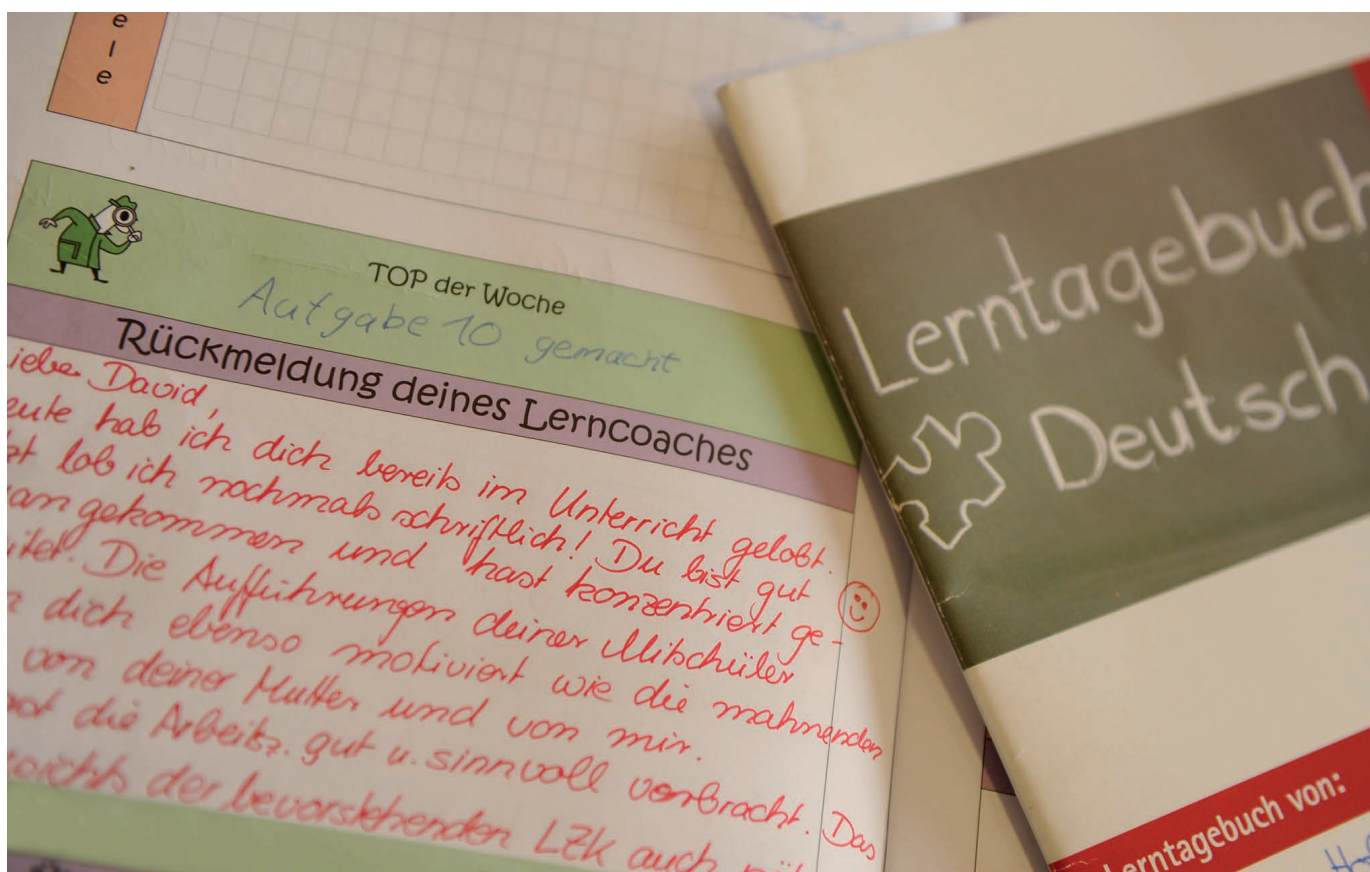 e
l
e
TOP der Woche
Aufgabe 10 gemacht
Rückmeldung deines Lerncoaches
ieber David,
eute hab ich dich bereits im Unterricht gelobt.
zt lob ich nochmals schriftlich! Du bist gut
angekommen und hast konzentriert ge-
itet. Die Aufführungen deiner Mitschüler
n dich ebenso motiviert wie die mahnenden
von deiner Mutter und von mir.
st die Arbeitsz. gut u. sinnvoll verbracht. Das
der bevorstehenden LZK auch
Lerntagebuch
Deutsch
Lerntagebuch von: